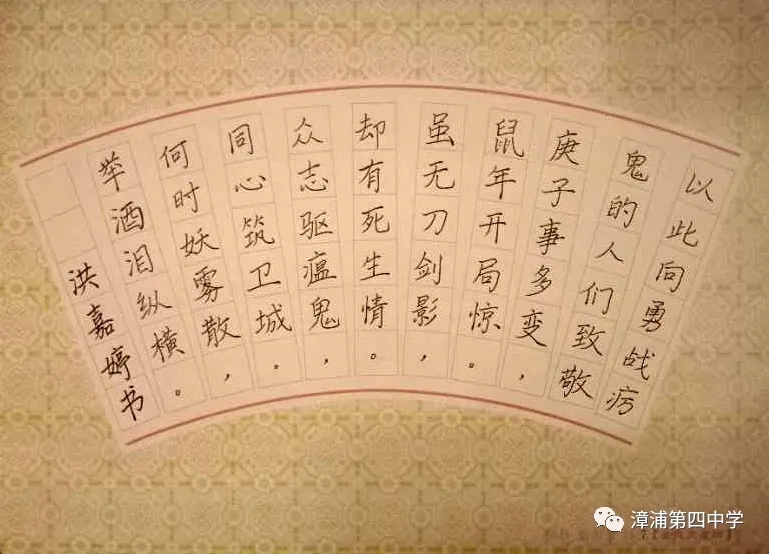 以此向勇战疠
鬼的人们致敬
庚子事多变，
鼠年开局惊。
虽无刀剑影，
却有死生情。
众志驱瘟鬼，
同心筑卫城。
何时妖雾散，
举酒泪纵横。
洪嘉婷书
漳浦第四中学